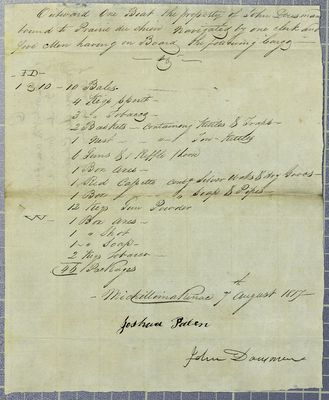 Outward One Boat the property of John Dousman
bound to Prairie du chien Navigated by one clerk and
five Men having on Board the following Cargo
JD
1 @ 10 - 10 Bales
4 Kegs Spirits
3 do Tobacco
2 Baskets - containing Kettles & Traps
1 Nest " Tin Kettles
6 Guns & 1 Riffle
1 Box Axes
1 Red Cassette Silver Works & dry Goods
1 Box " " Soap & Pipes
12 Kegs Gun Powder
W - 1 Box Axes
1 " Shot
1 " Soap
2 Kegs Tobacco
Packages
Michilimakinac 7th August 1817
Joshua Pilen
John Dousman